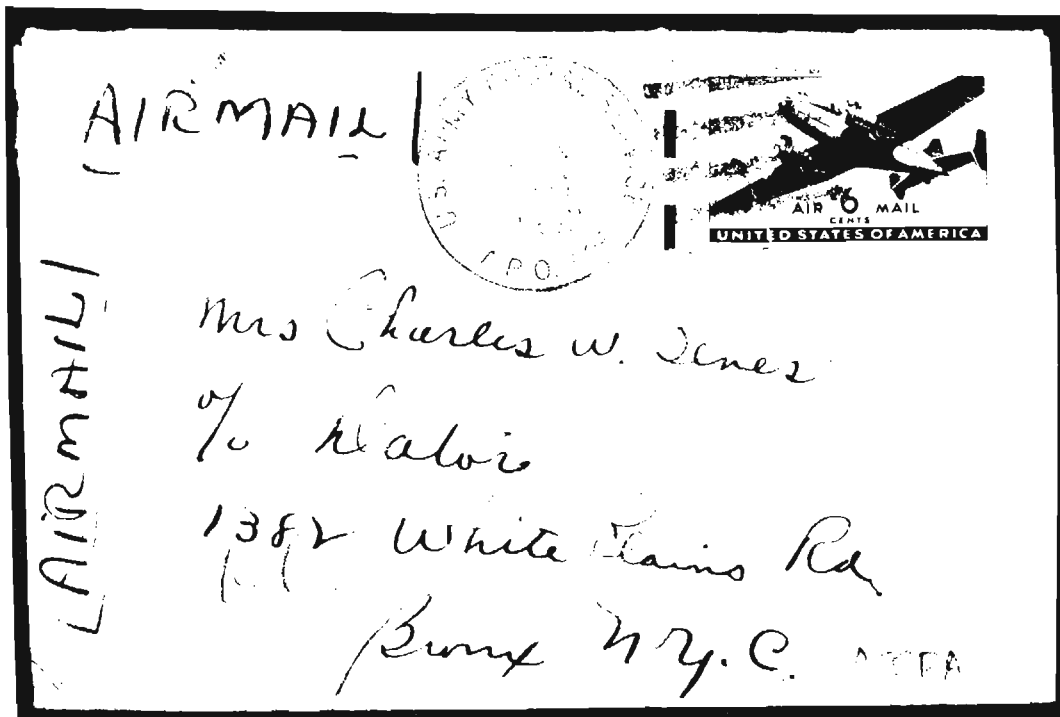 AIRMAIL
U.S. ARMY
AIR 6 MAIL
CENTS
UNITED STATES OF AMERICA
AIRMAIL
Mrs Charles W.
c/o
1382 White Plains Rd.
Bronx N.Y.C.